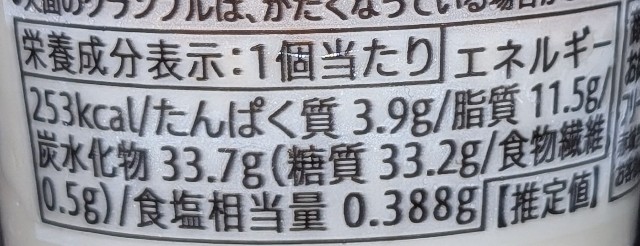 表面のクランブルは、かたくなっている場合が
栄養成分表示:1個当たり エネルギー
253kcal/たんぱく質 3.9g/脂質 11.5g/
炭水化物 33.7g(糖質 33.2g/食物繊維
0.5g)/食塩相当量 0.388g 【推定値】